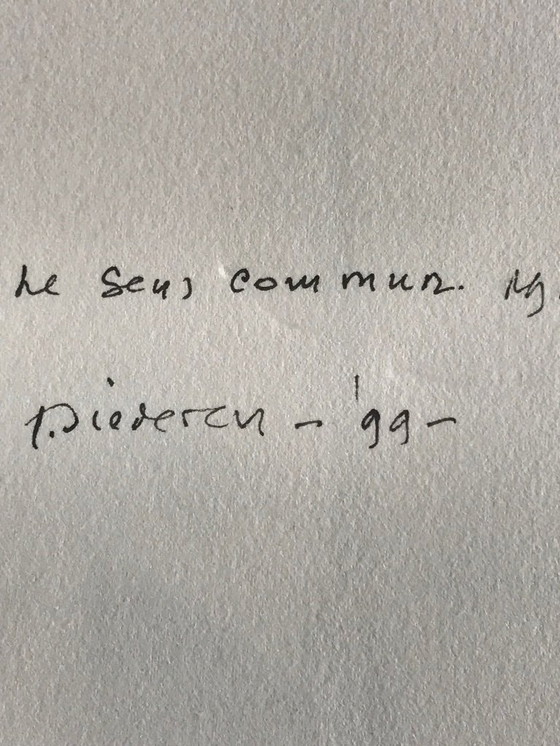 Le Sens commun.
P. Diederen - '99 -